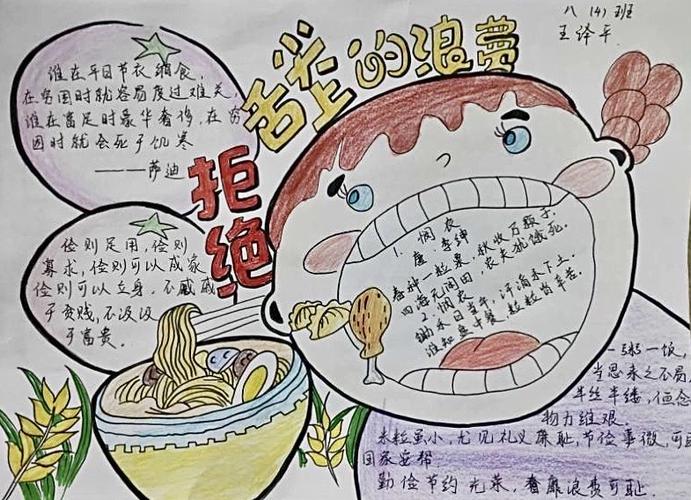 八（4）班
王译平
拒绝
舌尖上的浪费
谁在平日节衣缩食，
在穷困时就容易度过难关，
谁在富足时豪华奢侈，在穷
困时就会死于饥寒
——萨迪
俭则足用，俭则
寡求，俭则可以成家
俭则可以立身。不戚戚
于贫贱，不汲汲
于富贵。
1. 悯农
唐 李绅
春种一粒粟，秋收万颗子。
四海无闲田，农夫犹饿死。
2. 悯农
锄禾日当午，汗滴禾下土。
谁知盘中餐，粒粒皆辛苦。
一粥一饭，
当思来之不易，
半丝半缕，恒念
物力维艰。
米粒虽小，尤见礼义廉耻，节俭事微，可
国家安帮
勤俭节约光荣，奢靡浪费可耻